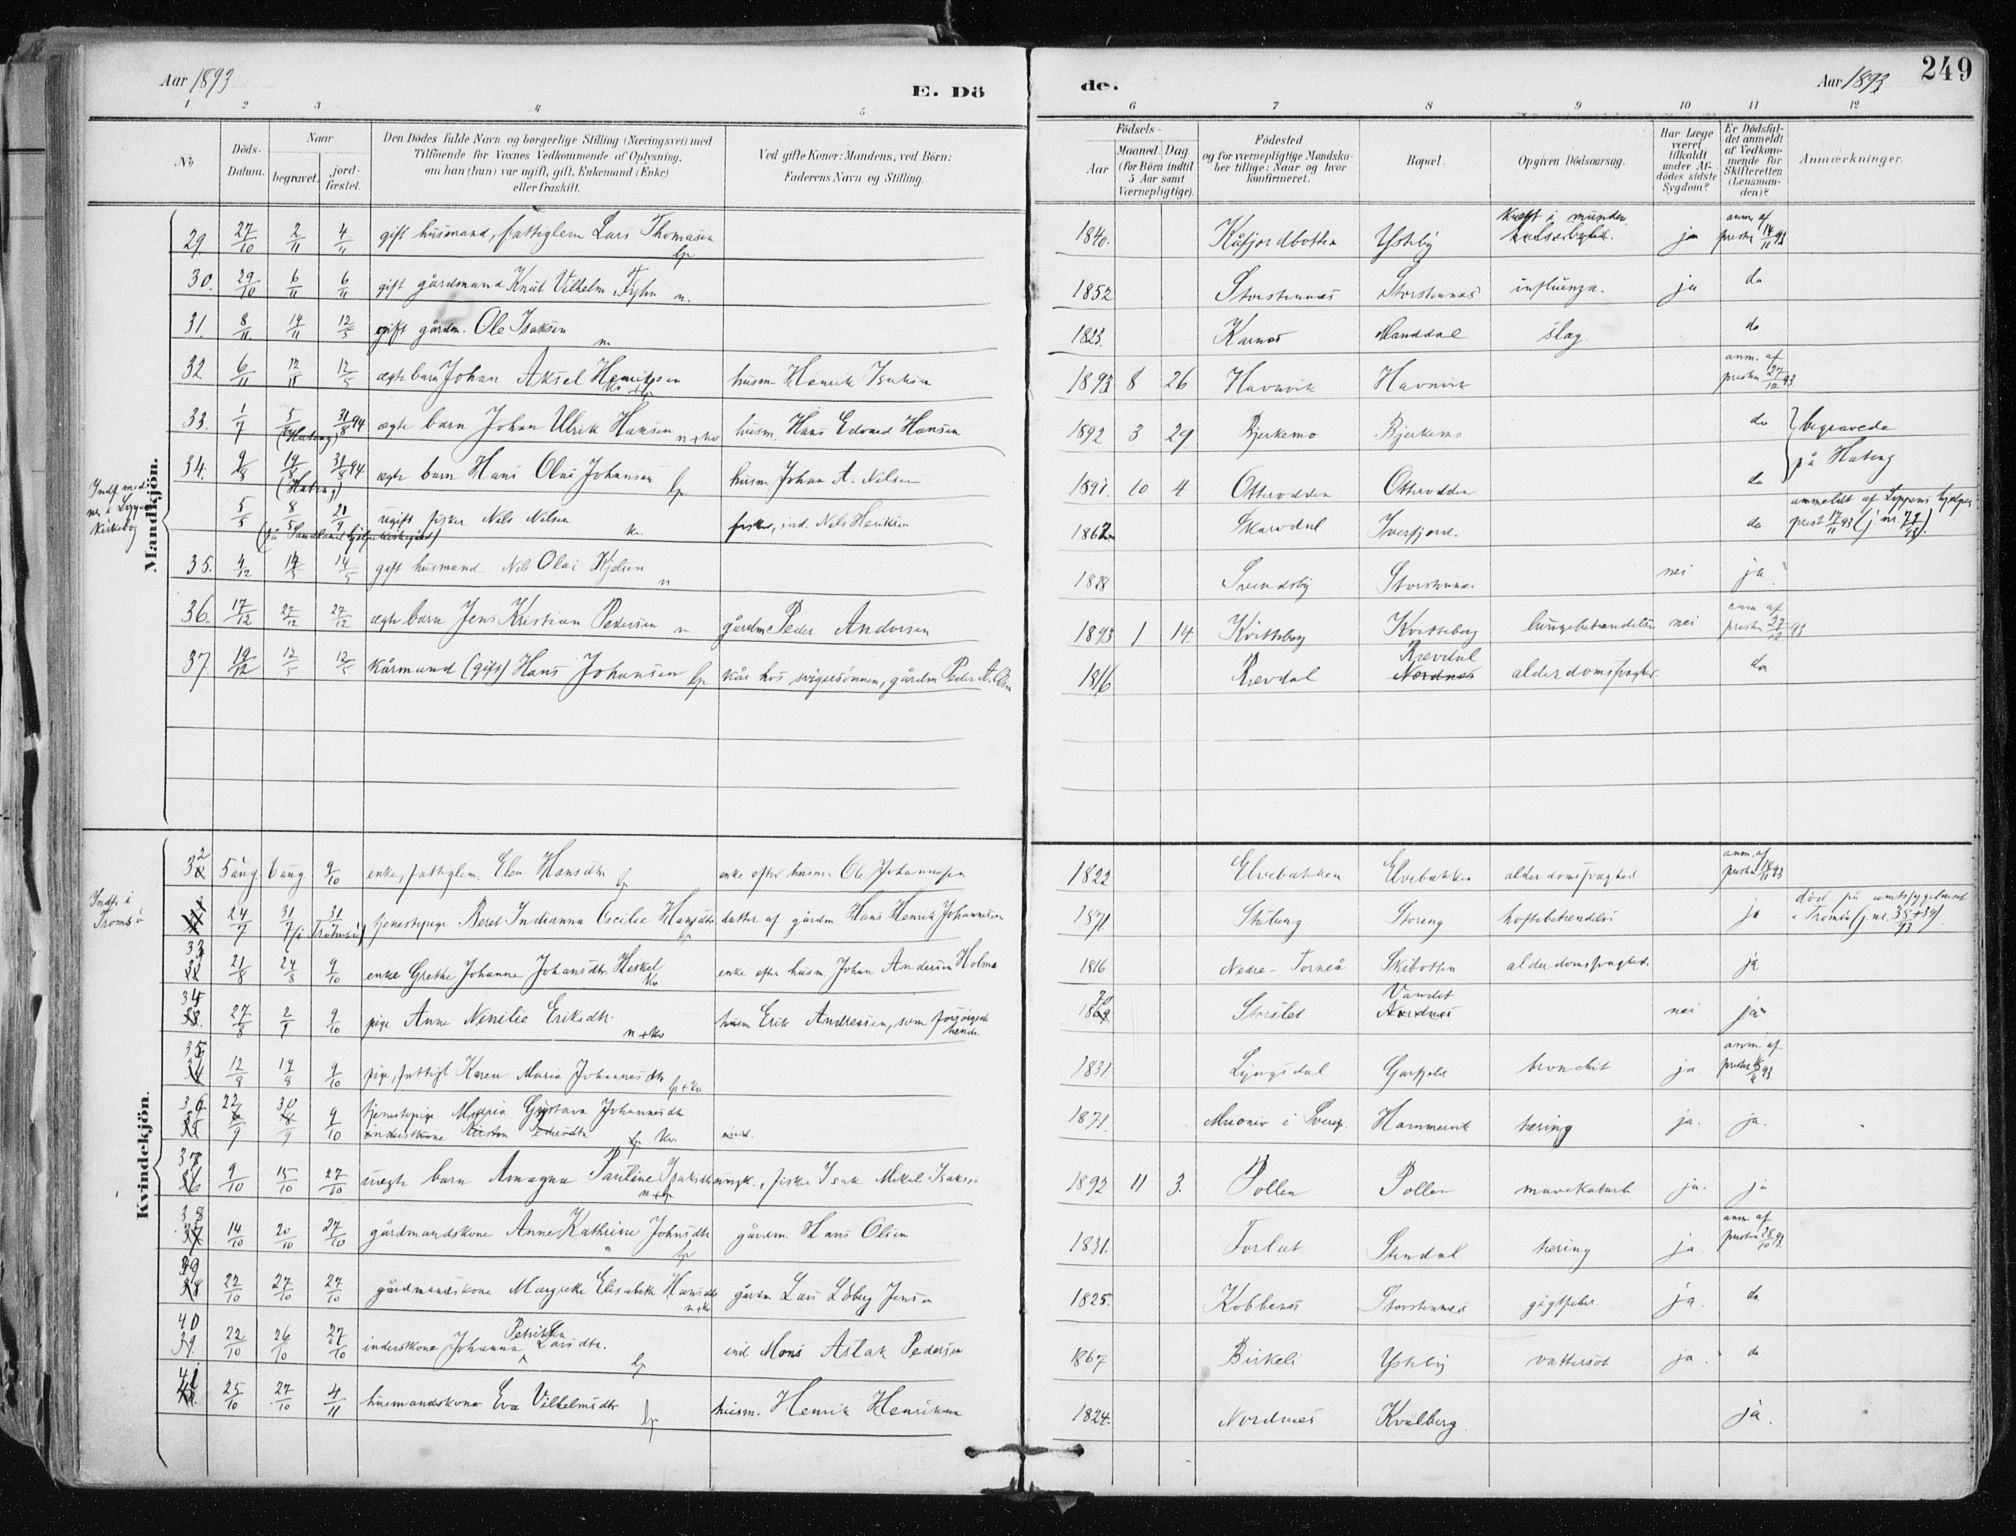 Aar 1893
E. Dö
de.
Aar 1893
249
1 2 3 4 5 6 7 8 9 10 11 12
No
Döds-Datum.
Naar
begravet.
jord-fæstet.
Den Dödes fulde Navn og borgerlige Stilling (Næringsvei) med
Tilföiende for Voxnes Vedkommende af Oplysning,
om han (hun) var ugift, gift, Enkemand (Enke)
eller fraskilt.
Ved gifte Koner: Mandens, ved Börn:
Faderens Navn og Stilling.
Födsels-
Aar
Maaned. Dag.
(for Börn indtil
5 Aar samt
Værnepligtige).
Födested
og for værnepligtige Mandska-
ber tillige: Naar og hvor
konfirmeret.
Bopæl.
Opgiven Dödsaarsag.
Har Læge
været
tilkaldt
under Af-
dödes sidste
Sygdom?
Er Dödsfal-
det anmeldt
af Vedkom-
mende for
Skifteretten
(Lensman-
den)?
Anmærkninger.
Mandkjön.
29. 27/10 2/11 4/11 gift husmand, fattiglem Lars Thomasen 1840. Kåfjordbotten Ysteby Kræft i munden ja anm. af presten 14/11 93
30. 29/10 6/11 6/11 gift gårdmand Knut Vilhelm n. 1852 Storstennæs Storstennæs influenza. ja do
31. 8/11 14/11 12/5 gift gårdm. Ole Isaksen n. 1823. Karnæs Manddal slag do
32 6/11 12/11 12/5 ægte barn Johan Aksel Henriksen husm. Henrik Isaksen 1893 8 26 Havnvik Havnvik anm. af presten 27/12 93.
33. 1/7 5/7 (Hateng) 31/8 94 ægte barn Johan Ulrik Hansen n+kv husm. Hans Edvard Hansen 1892 3 29 Bjerkemo Bjerkemo do begravede
34. 9/8 19/8 (Hateng) 31/8 94 ægte barn Hans Olai Johansen lp husm Johan A. Nilsen 1891. 10 4 Otterodden Otterodden do på Hateng
Indf. med
nr. i Loppens
kirkebog
5/5 8/5 21/9 ugift fisker Nils Nilsen kv. fisker, ind. Nils Henriksen 1862 Skarvdal Iversfjord. do anmeldt af Loppens hjelpe-
prest 17/11 93 (j. nr. 77/93).
35. 4/12 14/5 14/5 gift husmand Nils Olai Kjelsen n 1828 Svendsby Storstennæs nei ja.
36. 17/12 27/12 27/12 ægte barn Jens Kristian Pedersen n gårdm Peder Andersen 1893 1 14 Kvitteberg Kvitteberg lungebetændelse nei anm. af presten 27/12 93
37 19/12 12/5 12/5 Kårmand (gift) Hans Johansen lp kår hos svigersønnen, gårdm Peder A. Olsen 1816 Revdal Revdal Nordnæs alderdomssvaghed. do
Kvindekjön.
32 5 aug 6 aug. 9/10 enke, fattiglem. Elen Hansdtr lp enke efter husm. Ole Johannesen 1822 Elvebakken Elvebakken alderdomssvaghed anm. af presten 18/11 93
Indf. i
Tromsø
24/7 31/7 31/7 (i Tromsø) tjenestepige Beret Indianna Cecilie Hansdtr lp datter af gårdm Hans Henrik Johannesen 1871 Storeng hoftebetændelse ja død på amtssygehuset
i Tromsø (j. nr. 38+39/93).
33 21/8 24/8 9/10 enke Grethe Johanne Johansdtr Heskel kv enke efter husm. Johan Andersen Holma 1816 Nedre-Torneå Skibotten alderdomssvaghed. ja
34 27/8 2/9 9/10 pige Anne Nenilie Eriksdtr. n+kv husm Erik Andreassen, som forsörgede
hende. 1870 Storslet Vandet Nordnæs nei ja
35 12/8 14/8 9/10 pige, fattigl Karen Maria Johannesdtr lp+kv 1831 Lyngsdal bronchit ja anm. af presten 93
36 22/9 30/9 9/10 tjenestepige Maria Gustava Johannesdtr kv 1871. Muonio i Sverig. Hammervik tæring ja. ja.
37 9/10 15/10 27/10 uægte barn Amagna Pauline Isaksdtr n+lp ungk., fisker Isak Mikal Isaks. 1892 11 3. Pollen Pollen mavekatarh ja. ja
38 14/10 20/10 27/10 gårdmandskone Anne Kathrine Johnsdtr lp gårdm. Hans Olsen 1831. Stendal tæring ja. anm. af presten 28/10 93.
39 22/10 27/10 27/10 gårdmandskone Margrethe Elisabeth Hansdtr n+kv gårdm Lars Löberg Jensen 1825. Kobbenes Storstennæs gigtfeber. ja. do
40 39. 22/10 26/10 27/10 inderstkone Johanna Petrikka Larsdtr. lp ind. Mons Aslak Pedersen 1867 Birkeli Ysteby vattersot ja. do
41 25/10 27/10 4/11 husmandskone Eva Vilhelmsdtr lp husm. Henrik Henriksen 1824. Nordnæs Kvalberg. ja.